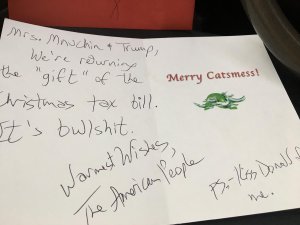 Mrs. Mnuchin & Trump,
We're returning
the "gift" of the
Christmas tax bill.
It's bullshit.
Warmest Wishes,
The American People
Merry Catsmess!
P.S. - Kiss Donald for
me.